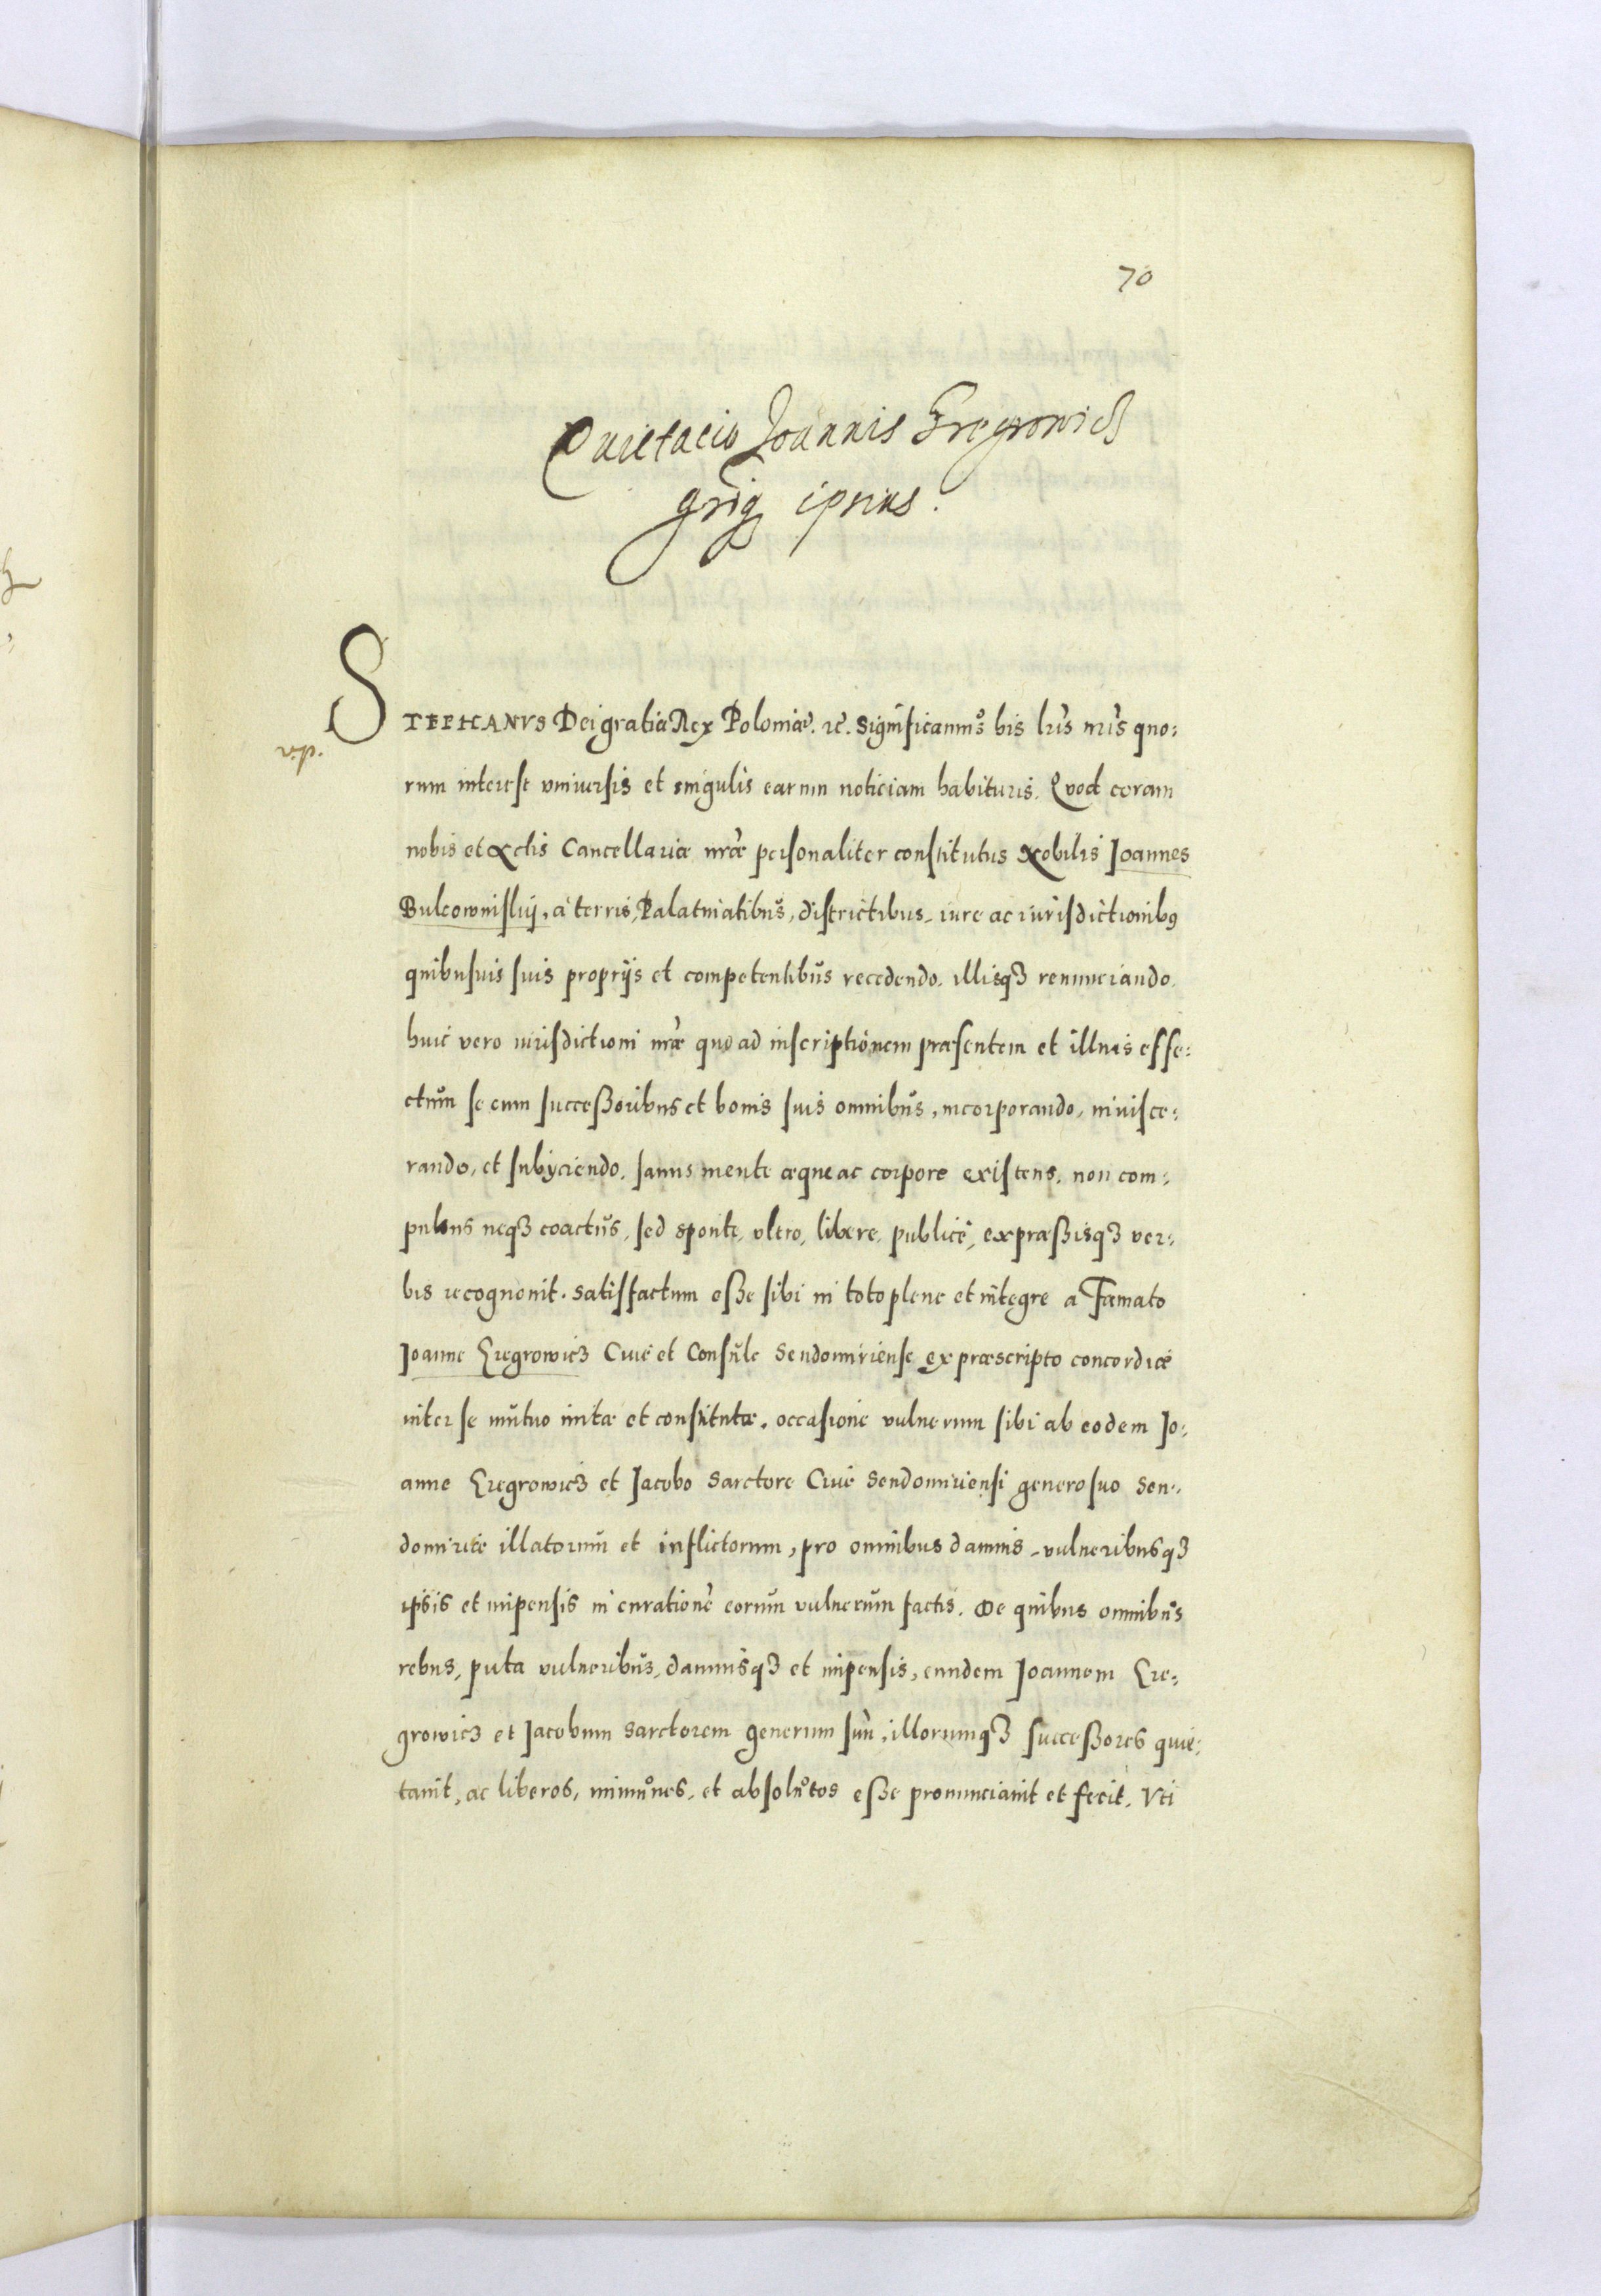 70
Quietacio Joannis Gregrowicz
ipsius.
STEPHANVS Dei gratia Rex Poloniæ. ꝛc. Significamus his lrīs nrīs quo:
rum interest vniuersis et singulis earum noticiam habituris. Quod coram
nobis et Actis Cancellariæ nræ personaliter constitutus Nobilis Joannes
Bulcownislij, à terris, Palatinatibus, districtibus, iure ac iurisdictionibꝯ
quibusuis suis proprijs et competentibus recedendo, illisqȝ renunciando,
huic vero iurisdictioni nræ quo ad inscriptionem præsentem et illius effe:
ctum se cum successoribus et bonis suis omnibus, incorporando, inuisce:
rando, et subijciendo, sanus mente æque ac corpore existens, non com:
pulsus neqȝ coactus, sed sponte, vltro, libere, publicè, expræssisqȝ ver:
bis recognouit. Satisfactum esse sibi in toto plene et integre a Famato
Joanne Gregrowicz Ciue et Consule Sendomiriense ex præscripto concordiæ
inter se mutuo initæ et constitutæ, occasione vulnerum sibi ab eodem Jo:
anne Gregrowicz et Jacobo Sarctore Ciue Sendomiriensi genero suo Sen:
domiriæ illatorum et inflictorum, pro omnibus damnis, vulneribusqȝ
ipsis et impensis in curatione eorum vulnerum factis. De quibus omnibus
rebus, puta vulneribus, damnisqȝ et impensis, eundem Joannem Gre:
growicz et Jacobum Sarctorem generum suū, illorumqȝ successores quie:
tauit, ac liberos, immunes, et absolutos esse pronunciauit et fecit. Vti